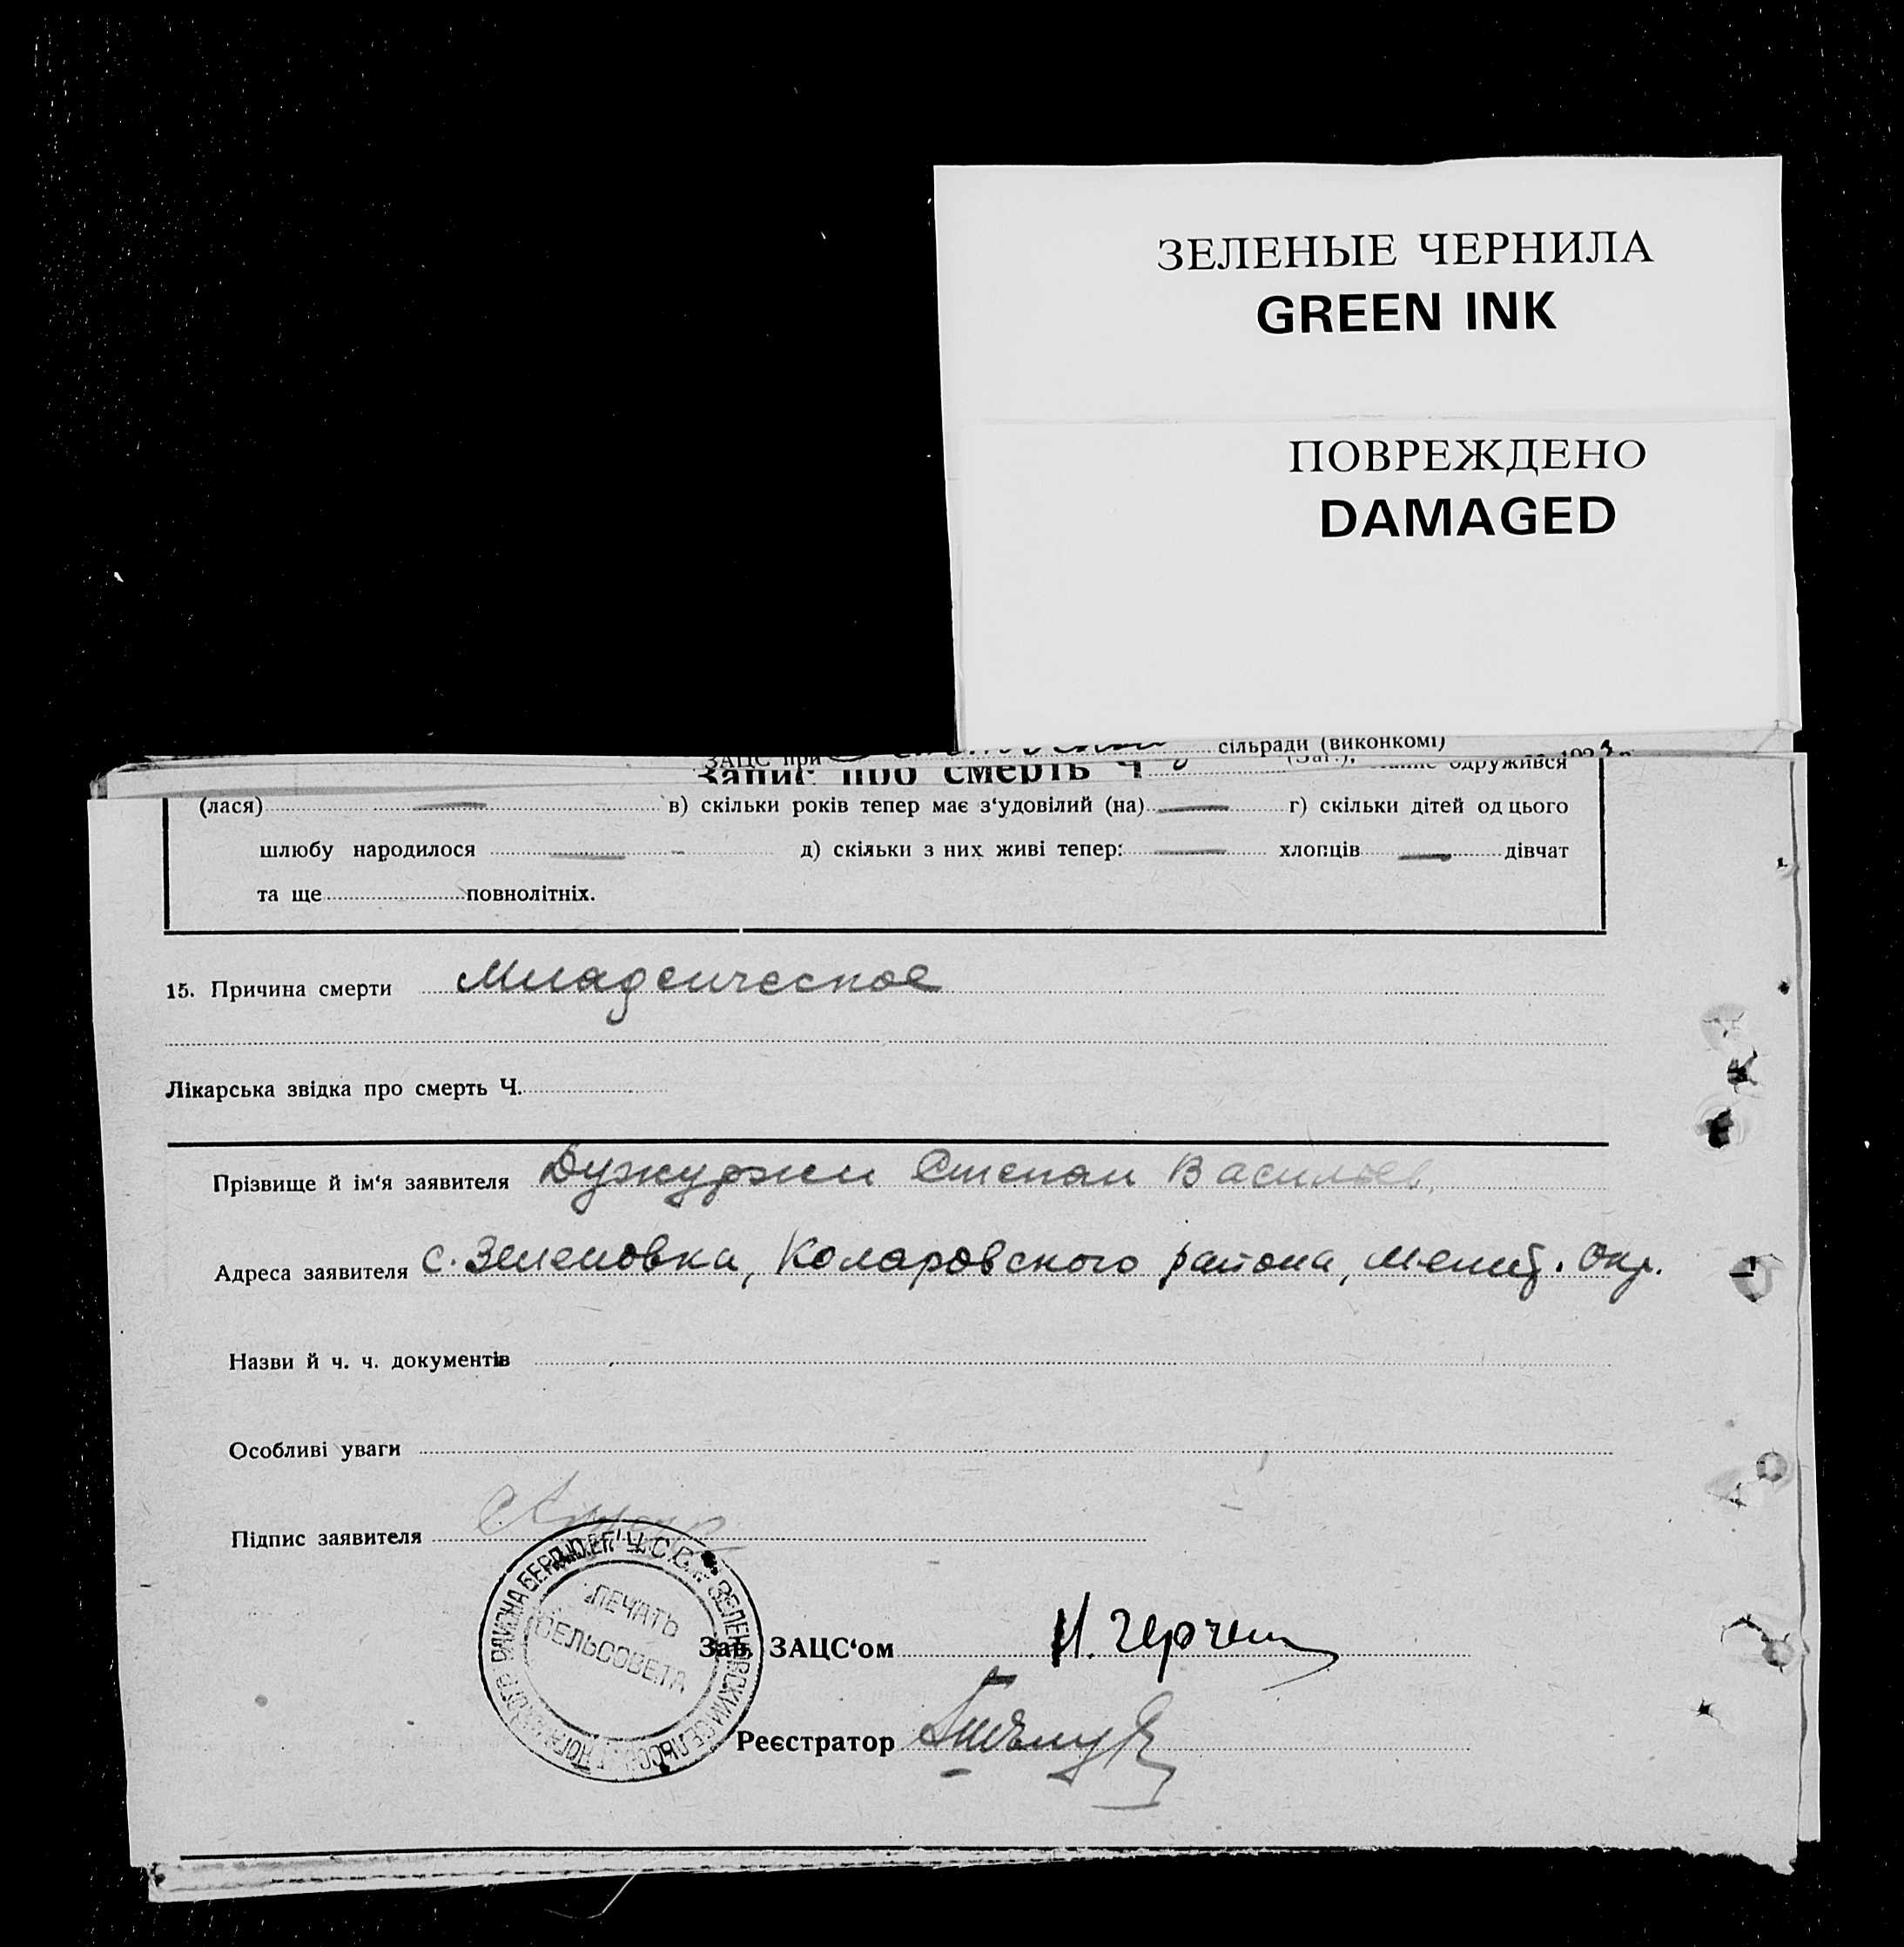 ЗЕЛЕНЫЕ ЧЕРНИЛА
GREEN INK
ПОВРЕЖДЕНО
DAMAGED
ЗАЦС при сільради (виконкомі)
Запис про смерть Ч
одружився
(лася) — в) скільки років тепер має з'удовілий (на) — г) скільки дітей од цього
шлюбу народилося — д) скільки з них живі тепер: — хлопців — дівчат
та ще повнолітніх.
15. Причина смерти Младенческое
Лікарська звідка про смерть Ч.
Прізвище й ім'я заявителя Дужуржи Степан Васильев.
Адреса заявителя с. Зеленовка, Коларовского района, Мелит. Окр.
Назви й ч. ч. документів
Особливі уваги
Підпис заявителя
ПЕЧАТЬ
СЕЛЬСОВЕТА
Зав. ЗАЦС'ом
Реєстратор